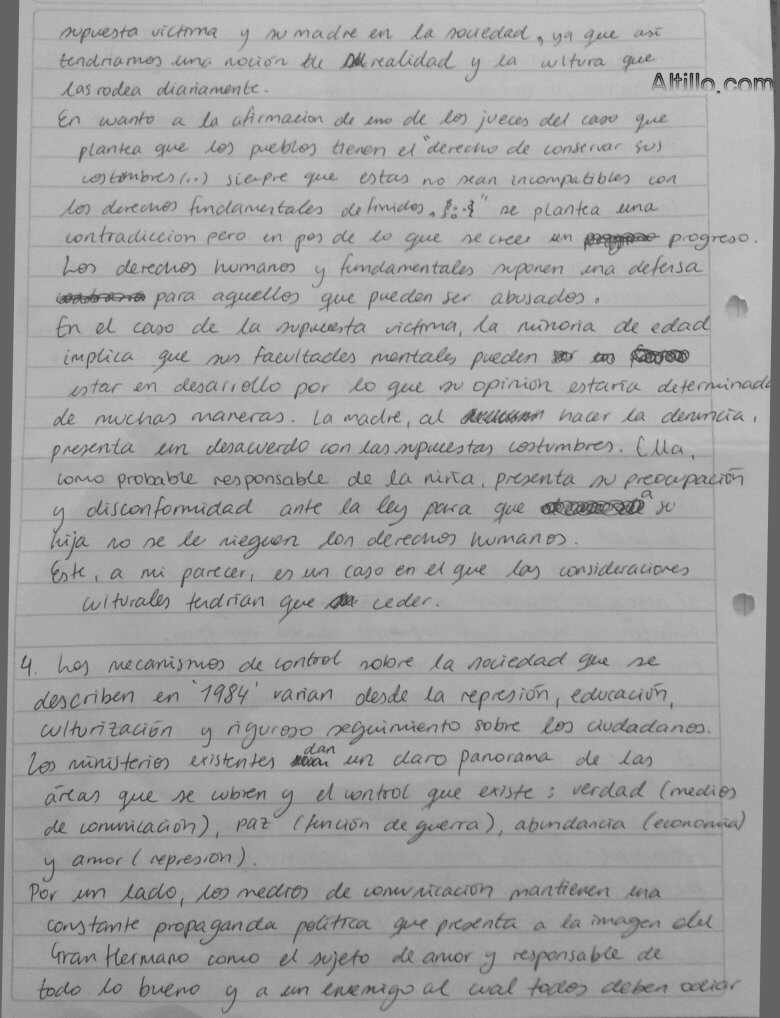 supuesta víctima y su madre en la sociedad, ya que así
tendríamos una noción de su realidad y la cultura que
las rodea diariamente.
Altillo.com
En cuanto a la afirmacion de uno de los jueces del caso que
plantea que los pueblos tienen el "derecho de conservar sus
costumbres (...) siempre que estas no sean incompatibles con
los derechos fundamentales definidos, {...}" se plantea una
contradiccion pero en pos de lo que se cree un progreso.
Los derechos humanos y fundamentales suponen una defensa
para aquellos que pueden ser abusados.
En el caso de la supuesta victima, la minoria de edad
implica que sus facultades mentales pueden
estar en desarrollo por lo que su opinión estaría determinada
de muchas maneras. La madre, al hacer la denuncia,
presenta un desacuerdo con las supuestas costumbres. Ella,
como probable responsable de la niña, presenta su preocupación
y disconformidad ante la ley para que a su
hija no se le nieguen los derechos humanos.
Este, a mi parecer, es un caso en el que las consideraciones
culturales tendrían que ceder.
4. Los mecanismos de control sobre la sociedad que se
describen en '1984' varian desde la represión, educación,
culturización y riguroso seguimiento sobre los ciudadanos.
Los ministerios existentes dan un claro panorama de las
áreas que se cubren y el control que existe: verdad (medios
de comunicación), paz (función de guerra), abundancia (economía)
y amor (represión).
Por un lado, los medios de comunicación mantienen una
constante propaganda política que presenta a la imagen del
Gran Hermano como el sujeto de amor y responsable de
todo lo bueno y a un enemigo al cual todos deben odiar